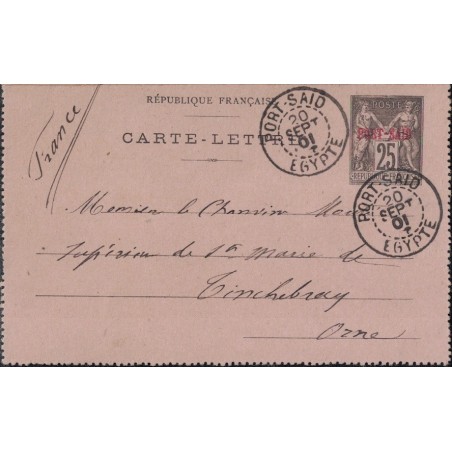 France
RÉPUBLIQUE FRANÇAISE
CARTE-LETTRE
POSTE
PORT-SAID
25
PORT-SAID
20
SEPT
01
EGYPTE
PORT-SAID
20
SEPT
01
EGYPTE
Monsieur le Chanoine
Supérieur de Ste Marie de
Tinchebray
Orne